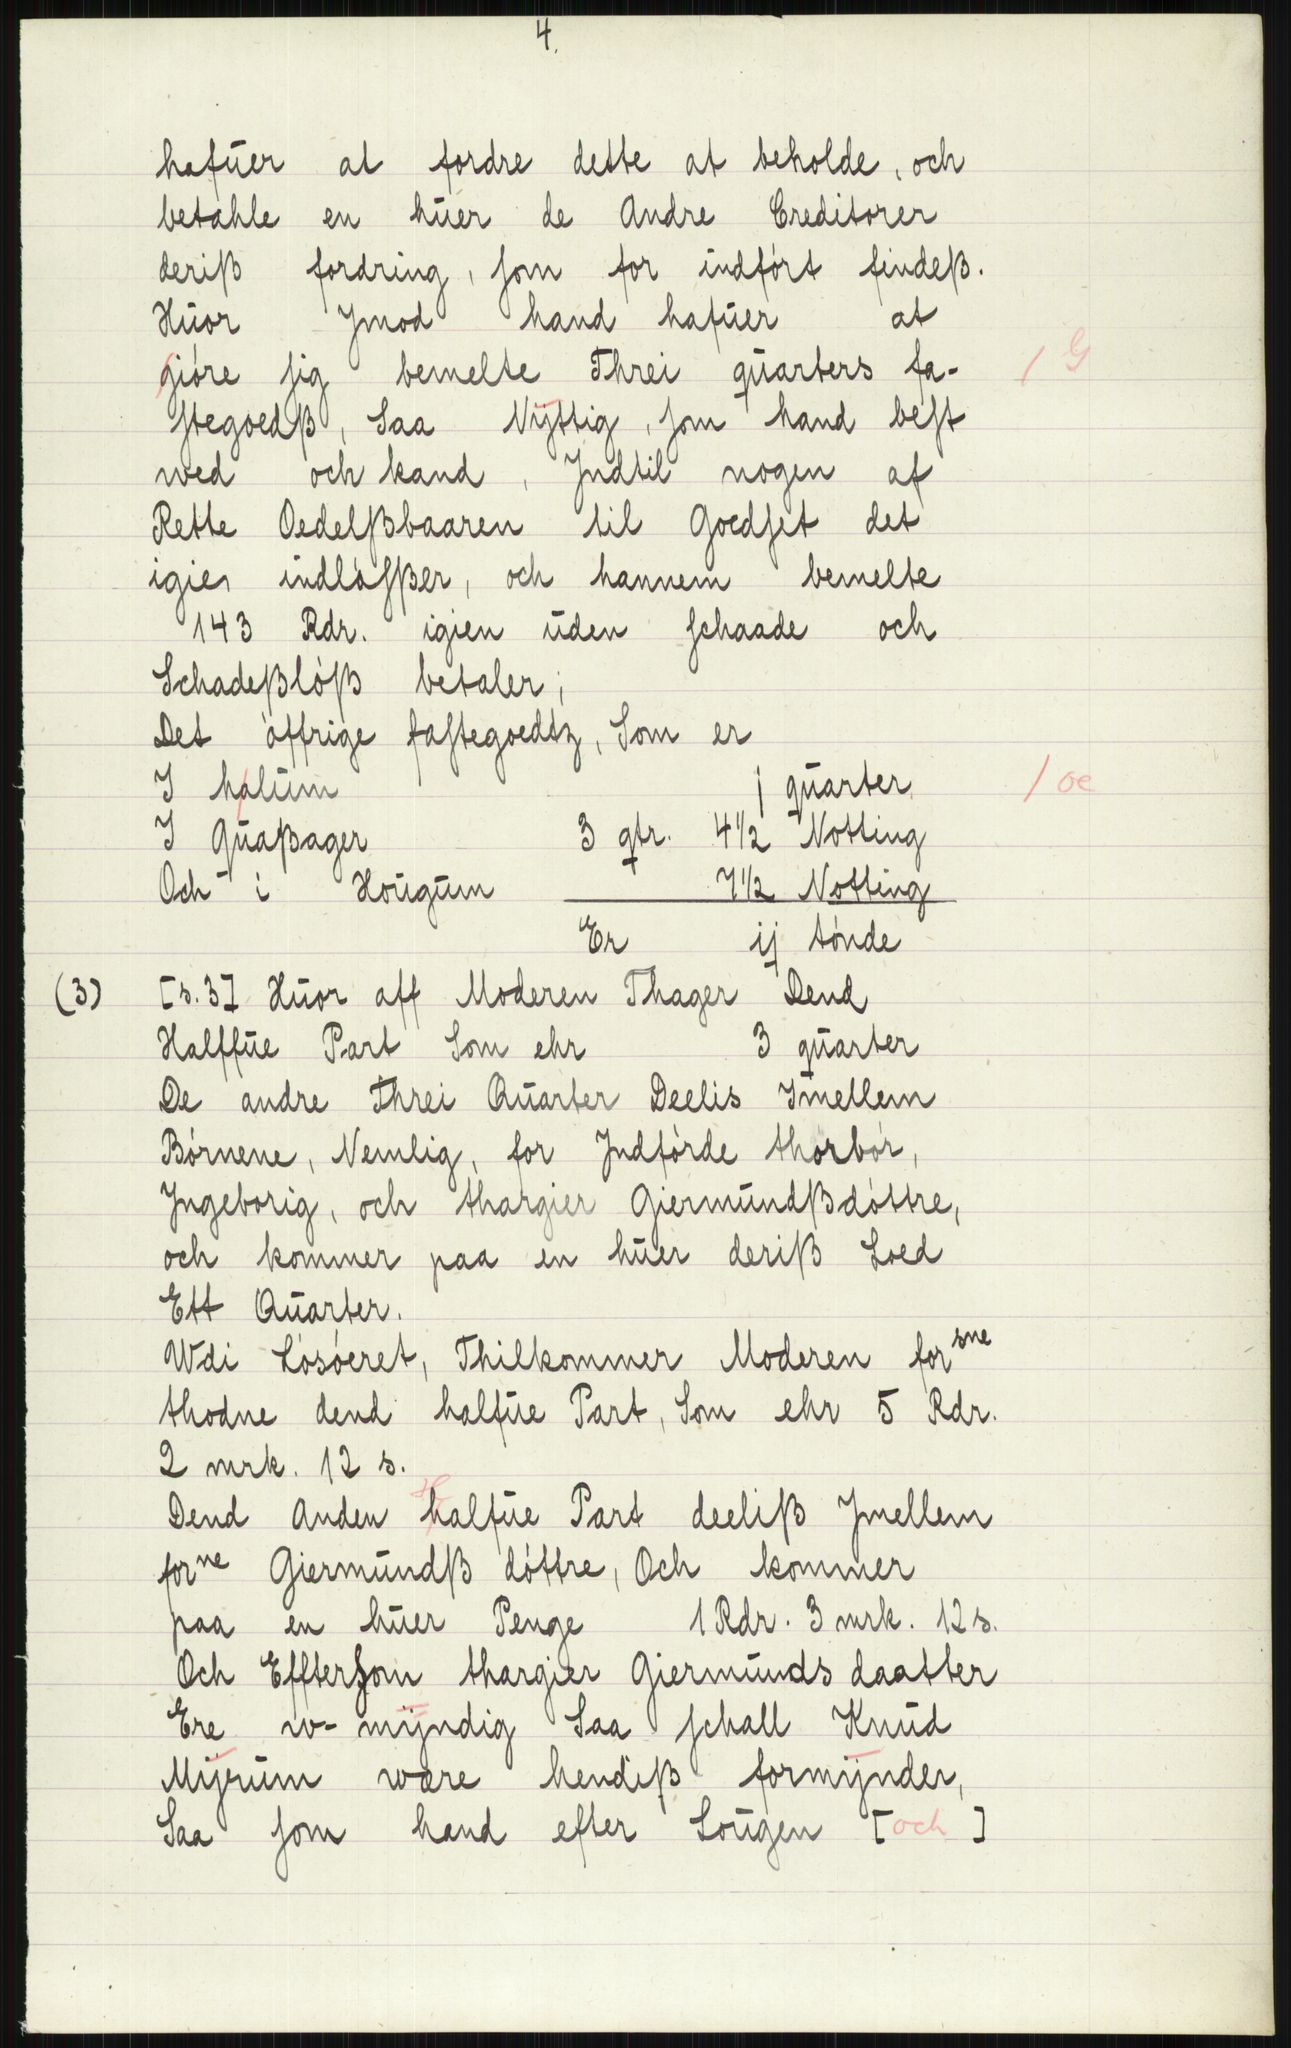 4.
hafuer at fordre dette at beholde, och
betahle en huer de Andre Creditorer
deriß fordring, som for indført findeß.
Huor Jmod hand hafuer at
giøre sig bemelte Threi quarters fa- / G
stegoedß, Saa Nyttig, som hand best
wed och kand, Jndtil nogen af
Rette Oedelßbaaren til Goedset det
igien indløsßer, och hannem bemelte
143 Rdr. igien uden schaade och
Schadeßløß betaler;
Det øffrige fastegoedtz, Som er
I halum j quarter / oe
I Quaßager 3 qtr. 4½ Notting
Och i Hougum 7½ Notting
Er ij tønde
(3) [s. 3] Huor aff Moderen Thager Dend
Halffue Part Som ehr 3 quarter
De andre Threi Quarter Deelis Imellem
Børnene, Nemlig, for Jndførde thorbør,
Jngeborig, och thargier Giermundßdøttre,
och kommer paa en huer deriß Loed
Ett Quarter.
Wdi Løsøeret, Thilkommer Moderen forsne
thodne dend halfue Part, Som ehr 5 Rdr.
2 mrk. 12 s.
Dend Anden halfue Part deeliß Jmellem
forne Giermundß døttre, Och kommer
paa en huer Penge 1 Rdr. 3 mrk. 12 s.
Och Efftersom thargier Giermunds daatter
Ere w-myndig Saa schall Knud
Myrum wære hendiß formynder,
Saa som hand efter Lougen [och]